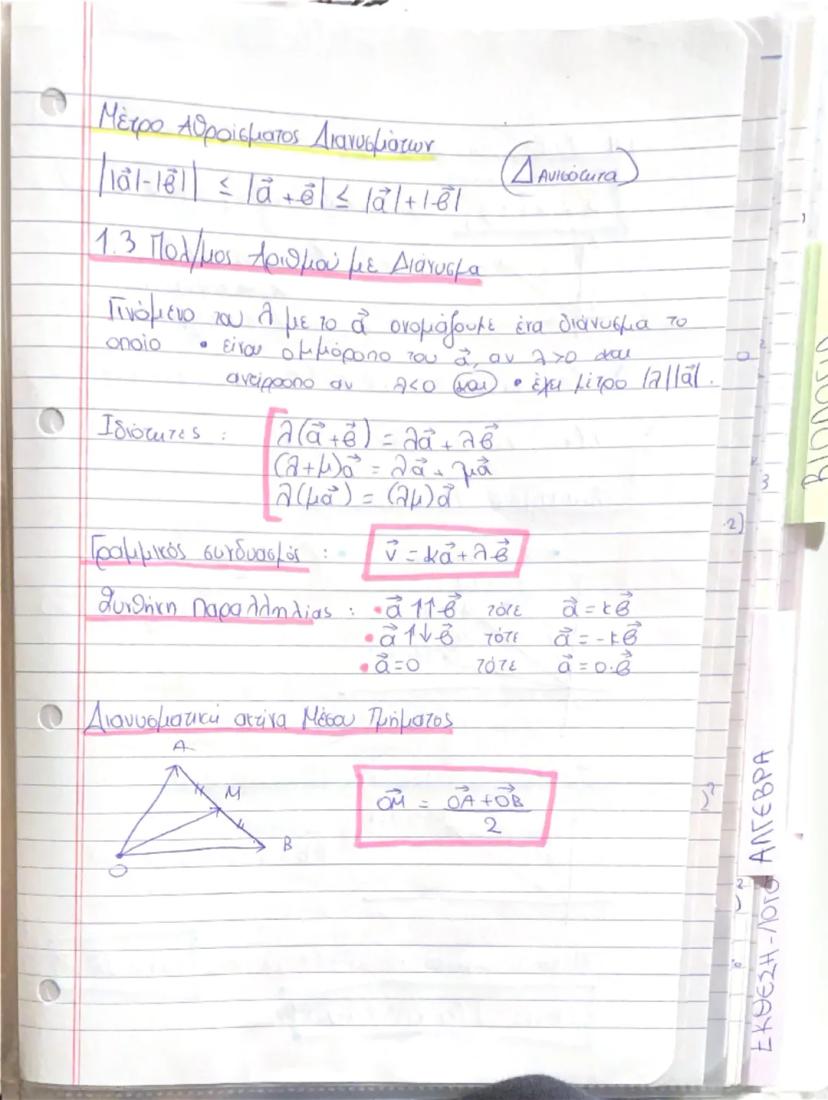 Μέτρο Αθροίσματος Διανυσμάτων
||α⃗|-|β⃗|| ≤ |α⃗+β⃗| ≤ |α⃗|+|β⃗| (Δ Ανισότητα)
1.3 Πολ/μος Αριθμού με Διάνυσμα
Γινόμενο του λ με το α⃗ ονομάζουμε ένα διάνυσμα το
οποίο • είναι ομμόροπο του α⃗, αν λ>0 και
αντίρροπο αν λ<0 και • έχει μέτρο |λ||α⃗|.
Ιδιότητες : λ(α⃗+β⃗) = λα⃗ + λβ⃗
(λ+μ)α⃗ = λα⃗ + μα⃗
λ(μα⃗) = (λμ)α⃗
Γραμμικός συνδυασμός : v⃗ = κα⃗+λβ⃗
Συνθήκη Παραλληλίας : • α⃗ ↑↑ β⃗ τότε α⃗ = κβ⃗
• α⃗ ↑↓ β⃗ τότε α⃗ = -κβ⃗
• α⃗=0 τότε α⃗ = 0·β⃗
Διανυσματική ακτίνα Μέσου Τμήματος
A
M
B
O
OM⃗ = (OA⃗ + OB⃗)/2
ΒΙΟΛΟΓΙΑ
ΑΛΓΕΒΡΑ